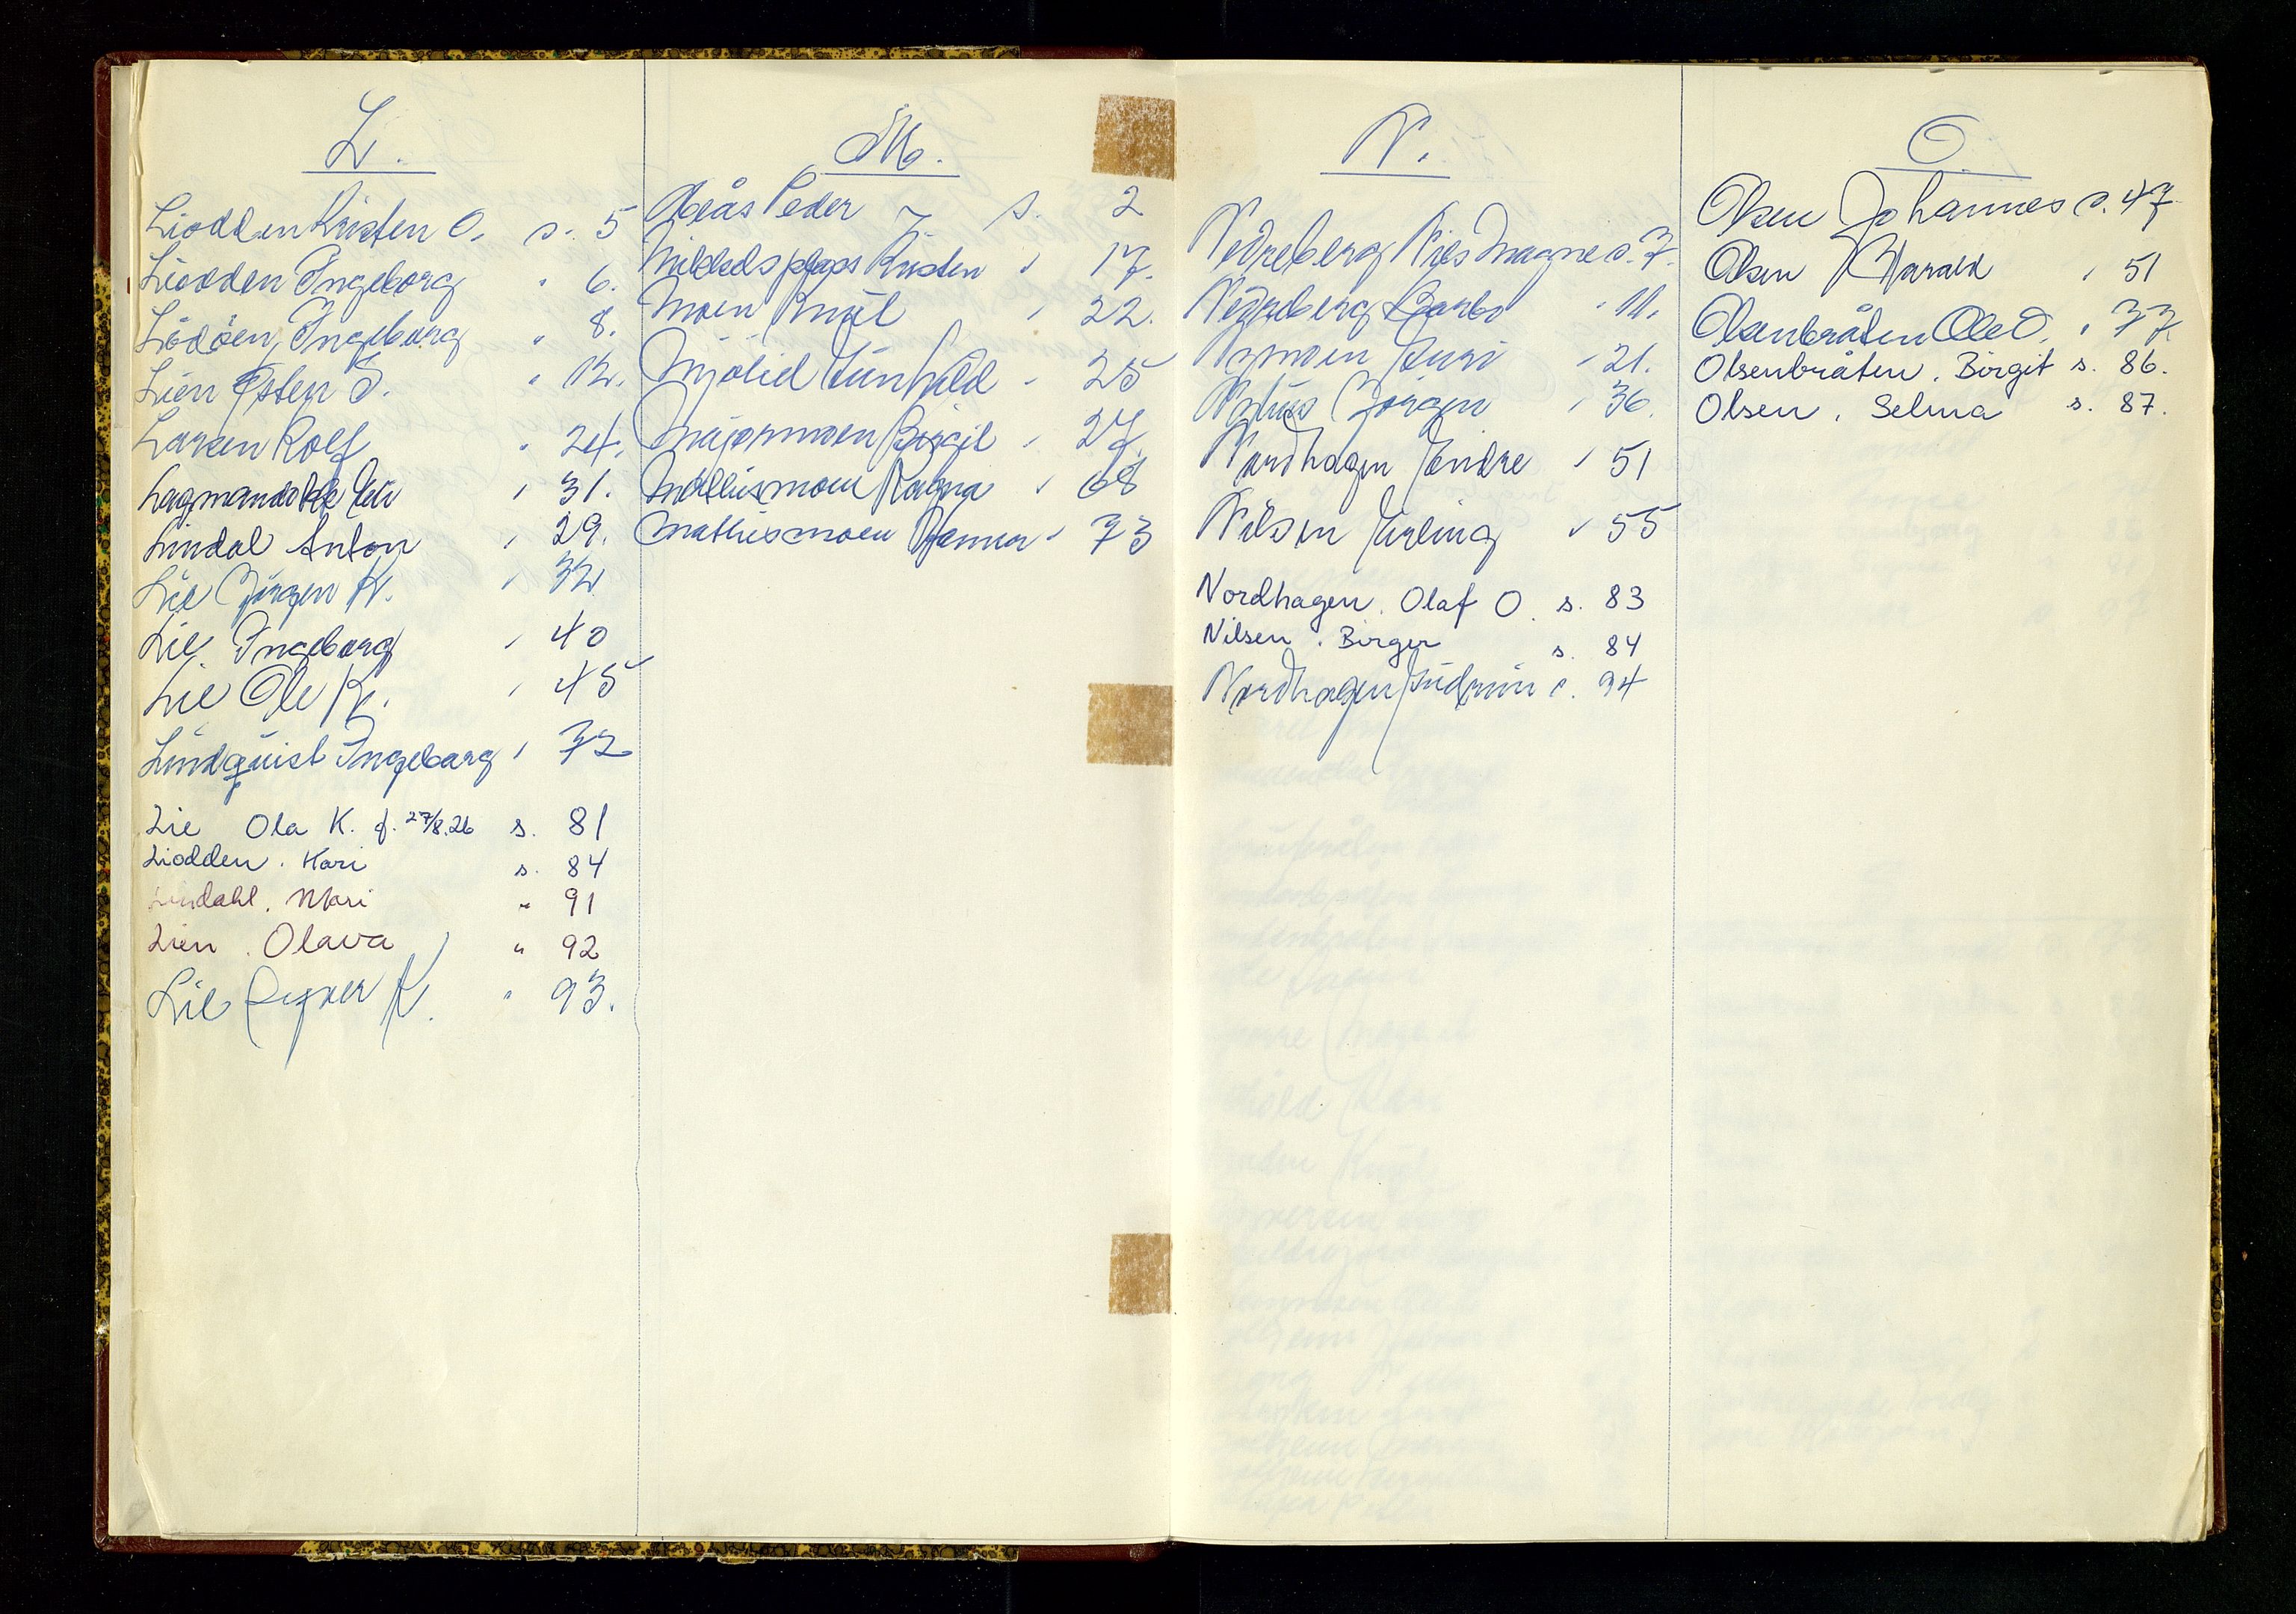 L.
Liodden Kristen O. s. 5
Liodden Ingeborg " 6.
Lioden, Ingeborg " 8.
Lien Østen S. " 12.
Larsen Rolf " 24.
Lagmandokk " 31.
Lindal Anton " 29.
Lie Jørgen K. " 32
Lie Ingeborg " 40
Lie Ole K. " 45
Lindquist Ingeborg " 72
Lie Ola K. f. 27/8.26 s. 81
Liodden. Kari s. 84
Lindahl. Mari " 91
Lien. Olava " 92
Lie K. " 93.
M.
Moås Peder J s. 2
Kristen " 17.
Moen Knut " 22.
Mjølid Gunhild " 25
Majormoen Birgit " 27.
Mathismoen Ragna " 68
Mathismoen Gunnar " 73
N.
Nedreberg Nils Magne s. 7.
Nedreberg Barbo " 11.
Nymoen Guri " 21.
Nyhus Jørgen " 36.
Nordhagen Endre " 51
Nilsen Erling " 55
Nordhagen. Olaf O. s. 83
Nilsen. Birger s. 84
Nordhagen Gudrun s. 94
O.
Olsen Johannes s. 47
Olsen Harald " 51
Olsenbråten Ole O. " 77
Olsenbråten. Birgit s. 86.
Olsen. Selma s. 87.